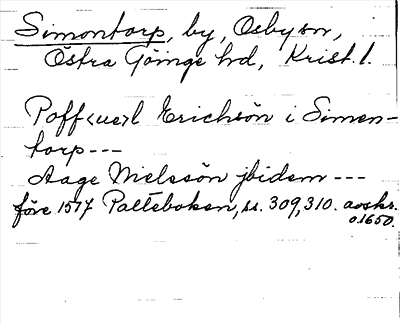 Simontorp, by, Osby sn,
Östra Göinge hd, Krist. l.
Poff<ue>l Erichsön i Simon-
torp ---
Aage Nielssön jbidem ---
före 1577 Palteboken, ss. 309, 310. avskr.
o. 1650.